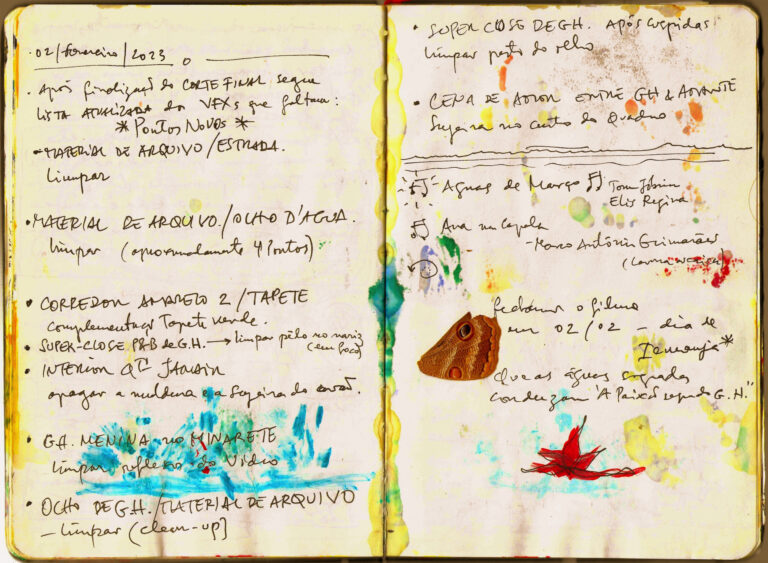 02/fevereiro/2023
• Após finalização do CORTE FINAL segue
LISTA ATUALIZADA dos VFXs que faltam:
* Pontos Novos *
• MATERIAL DE ARQUIVO/ESTRADA.
limpar
• MATERIAL DE ARQUIVO/OLHO D'AGUA.
limpar (aproximadamente 4 Pontos)
• CORREDOR AMARELO 2 / TAPETE
complementação Tapete verde.
• SUPER-CLOSE P&B de G.H. → limpar pêlo no nariz
(em foco)
• INTERIOR QTO JANAIR
apagar a moldura e a sujeira do
• G.H. MENINA no MINARETE
limpar reflexo do Vídeo
• OLHO DE G.H. / MATERIAL DE ARQUIVO
– limpar (clean-up)
• SUPER CLOSE DE G.H. Após cuspidas
limpar perto do olho
• CENA DE AMOR ENTRE GH & AMANTE
Sujeira no canto do Quadro
Aguas de Março Tom Jobim
Elis Regina
Ava
– Marco Antônio Guimarães
fechamos o filme
em 02/02 – dia de
Iemanjá*
Que as águas sagradas
conduzam "A Paixão segundo G.H."